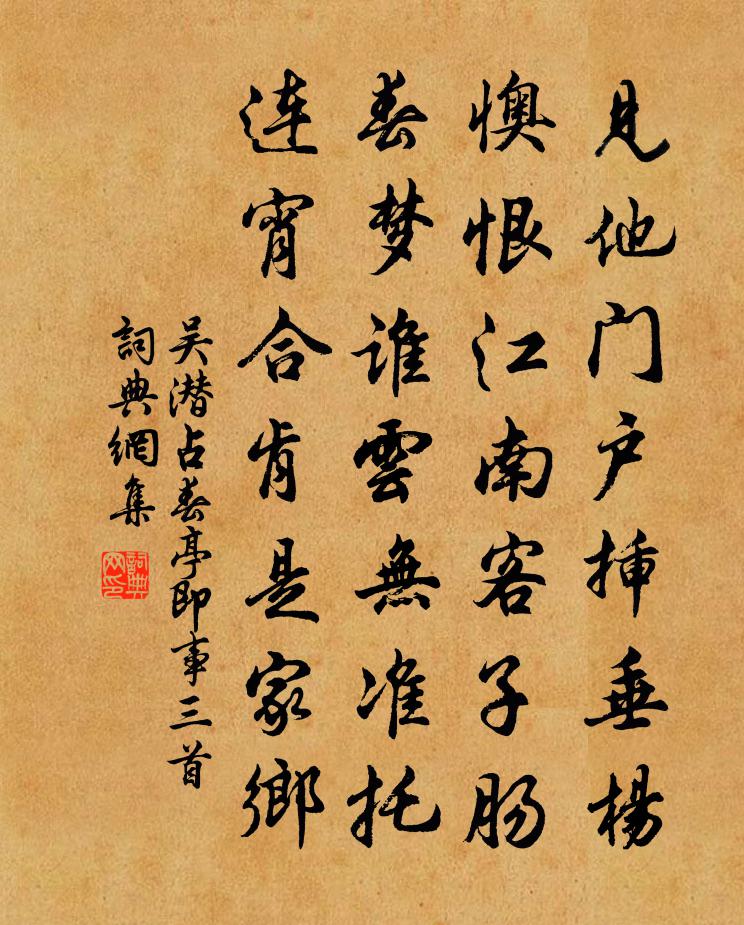 见他门户揷垂楊
懊恨江南客子肠
春梦谁雲無准托
连宵合肯是家鄉
吴潜占春亭即事三首
詞典網集
詞典网印